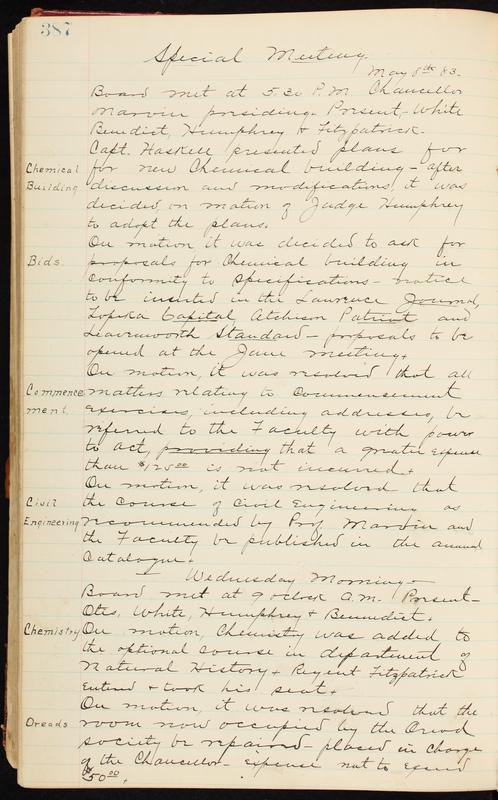 387
Special Meeting.
May 8th 83.
Board met at 5.30 P.M. Chancellor
Marvin presiding. Present,- White
Benedict, Humphrey & Fitzpatrick.
Capt. Haskell presented plans for
Chemical for new Chemical building - after
Building discussion and modifications, it was
decided on motion of Judge Humphrey
to adopt the plans.
On motion it was decided to ask for
Bids. proposals for Chemical building in
conformity to specifications - notice
to be inserted in the Lawrence Journal,
Topeka Capital Atchison Patriot and
Leavenworth Standard - proposals to be
opened at the June meeting.
On motion, it was resolved that all
Commence matters relating to Commencement
ment. exercises, including addresses, be
referred to the Faculty with power
to act, providing that a greater expense
than $125.00 is not incurred.
On motion, it was resolved that
Civil the course of Civil Engineering as
Engineering recommended by Prof Marvin and
the Faculty be published in the annual
Catalogue.
Wednesday Morning -
Board met at 9 oclock A.M. Present -
Otis, White, Humphrey & Bennedict.
Chemistry On motion, Chemistry was added to
the optional course in department of
Natural History. Regent Fitzpatrick
Entered & took his seat.
On motion, it was resolved that the
Oreads room now occupied by the Oread
society be repaired - placed in charge
of the Chancellor - expense not to exceed
$50.00.